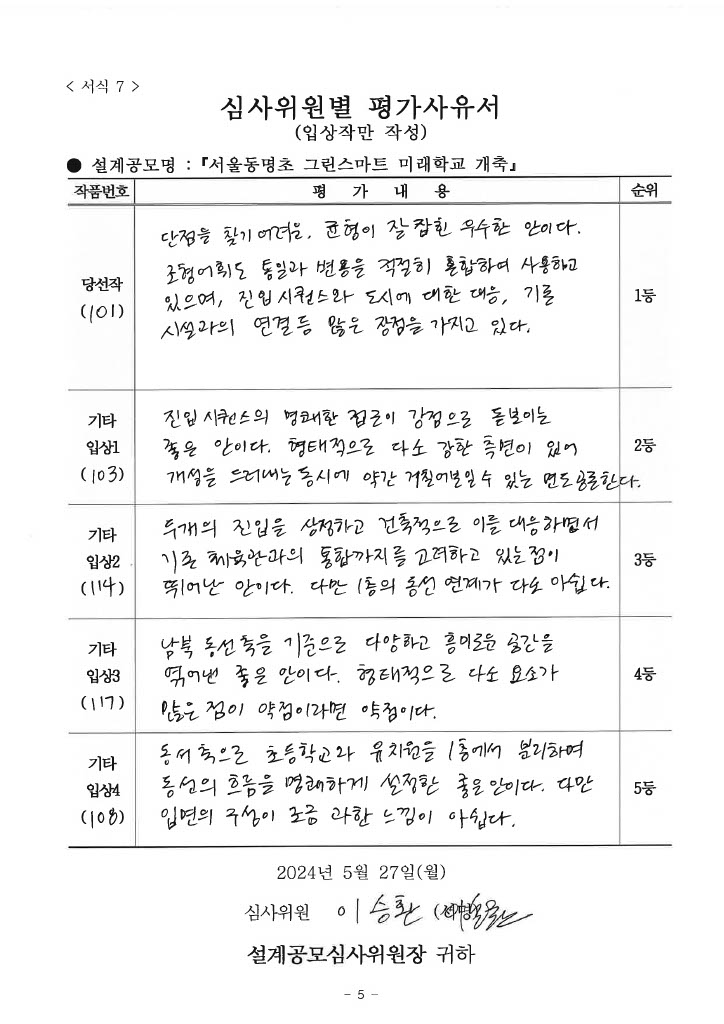 < 서식 7 >
심사위원별 평가사유서
(입상작만 작성)
● 설계공모명 : 『서울동명초 그린스마트 미래학교 개축』
작품번호 평 가 내 용 순위
당선작
(101)
단점을 찾기 어려운, 균형이 잘 잡힌 우수한 안이다.
조형어휘도 통일과 변용을 적절히 혼합하여 사용하고
있으며, 진입시퀀스와 도시에 대한 대응, 기존
시설과의 연결 등 많은 장점을 가지고 있다.
1등
기타
입상1
(103)
진입 시퀀스의 명쾌한 접근이 강점으로 돋보이는
좋은 안이다. 형태적으로 다소 강한 측면이 있어
개성을 드러내는 동시에 약간 거칠어보일 수 있는 면도 공존한다.
2등
기타
입상2
(114)
두개의 진입을 상정하고 건축적으로 이를 대응하면서
기존 체육관과의 통합까지를 고려하고 있는 점이
뛰어난 안이다. 다만 1층의 동선 연계가 다소 아쉽다.
3등
기타
입상3
(117)
남북 동선축을 기준으로 다양하고 흥미로운 공간을
엮어낸 좋은 안이다. 형태적으로 다소 요소가
많은 점이 약점이라면 약점이다.
4등
기타
입상4
(108)
동서축으로 초등학교와 유치원을 1층에서 분리하며
동선의 흐름을 명쾌하게 설정한 좋은 안이다. 다만
입면의 구성이 조금 과한 느낌이 아쉽다.
5등
2024년 5월 27일(월)
심사위원 이승환 (서명)
설계공모심사위원장 귀하
- 5 -